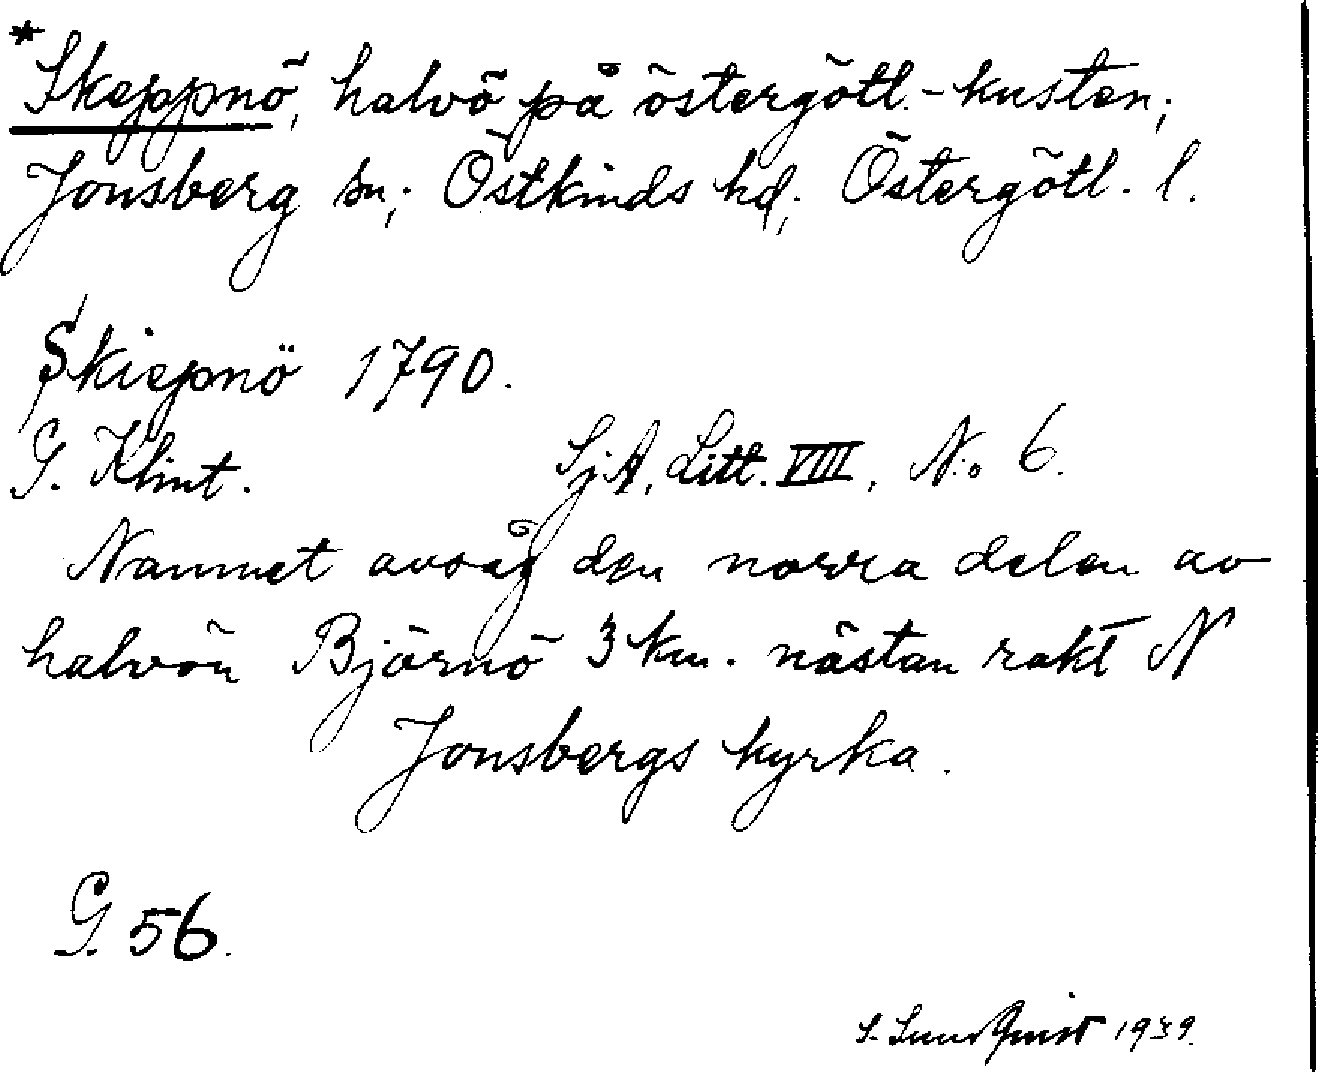 *Skeppnö, halvö på östergötl.-kusten;
Jonsberg sn; Östkinds hd; Östergötl. l.
Skiepnö 1790.
G. Klint. SjA, Litt. VIII, No 6.
Namnet avsåg den norra delen av
halvön Björnö 3 km. nästan rakt N
Jonsbergs kyrka.
G. 56.
S. Lundquist 1939.